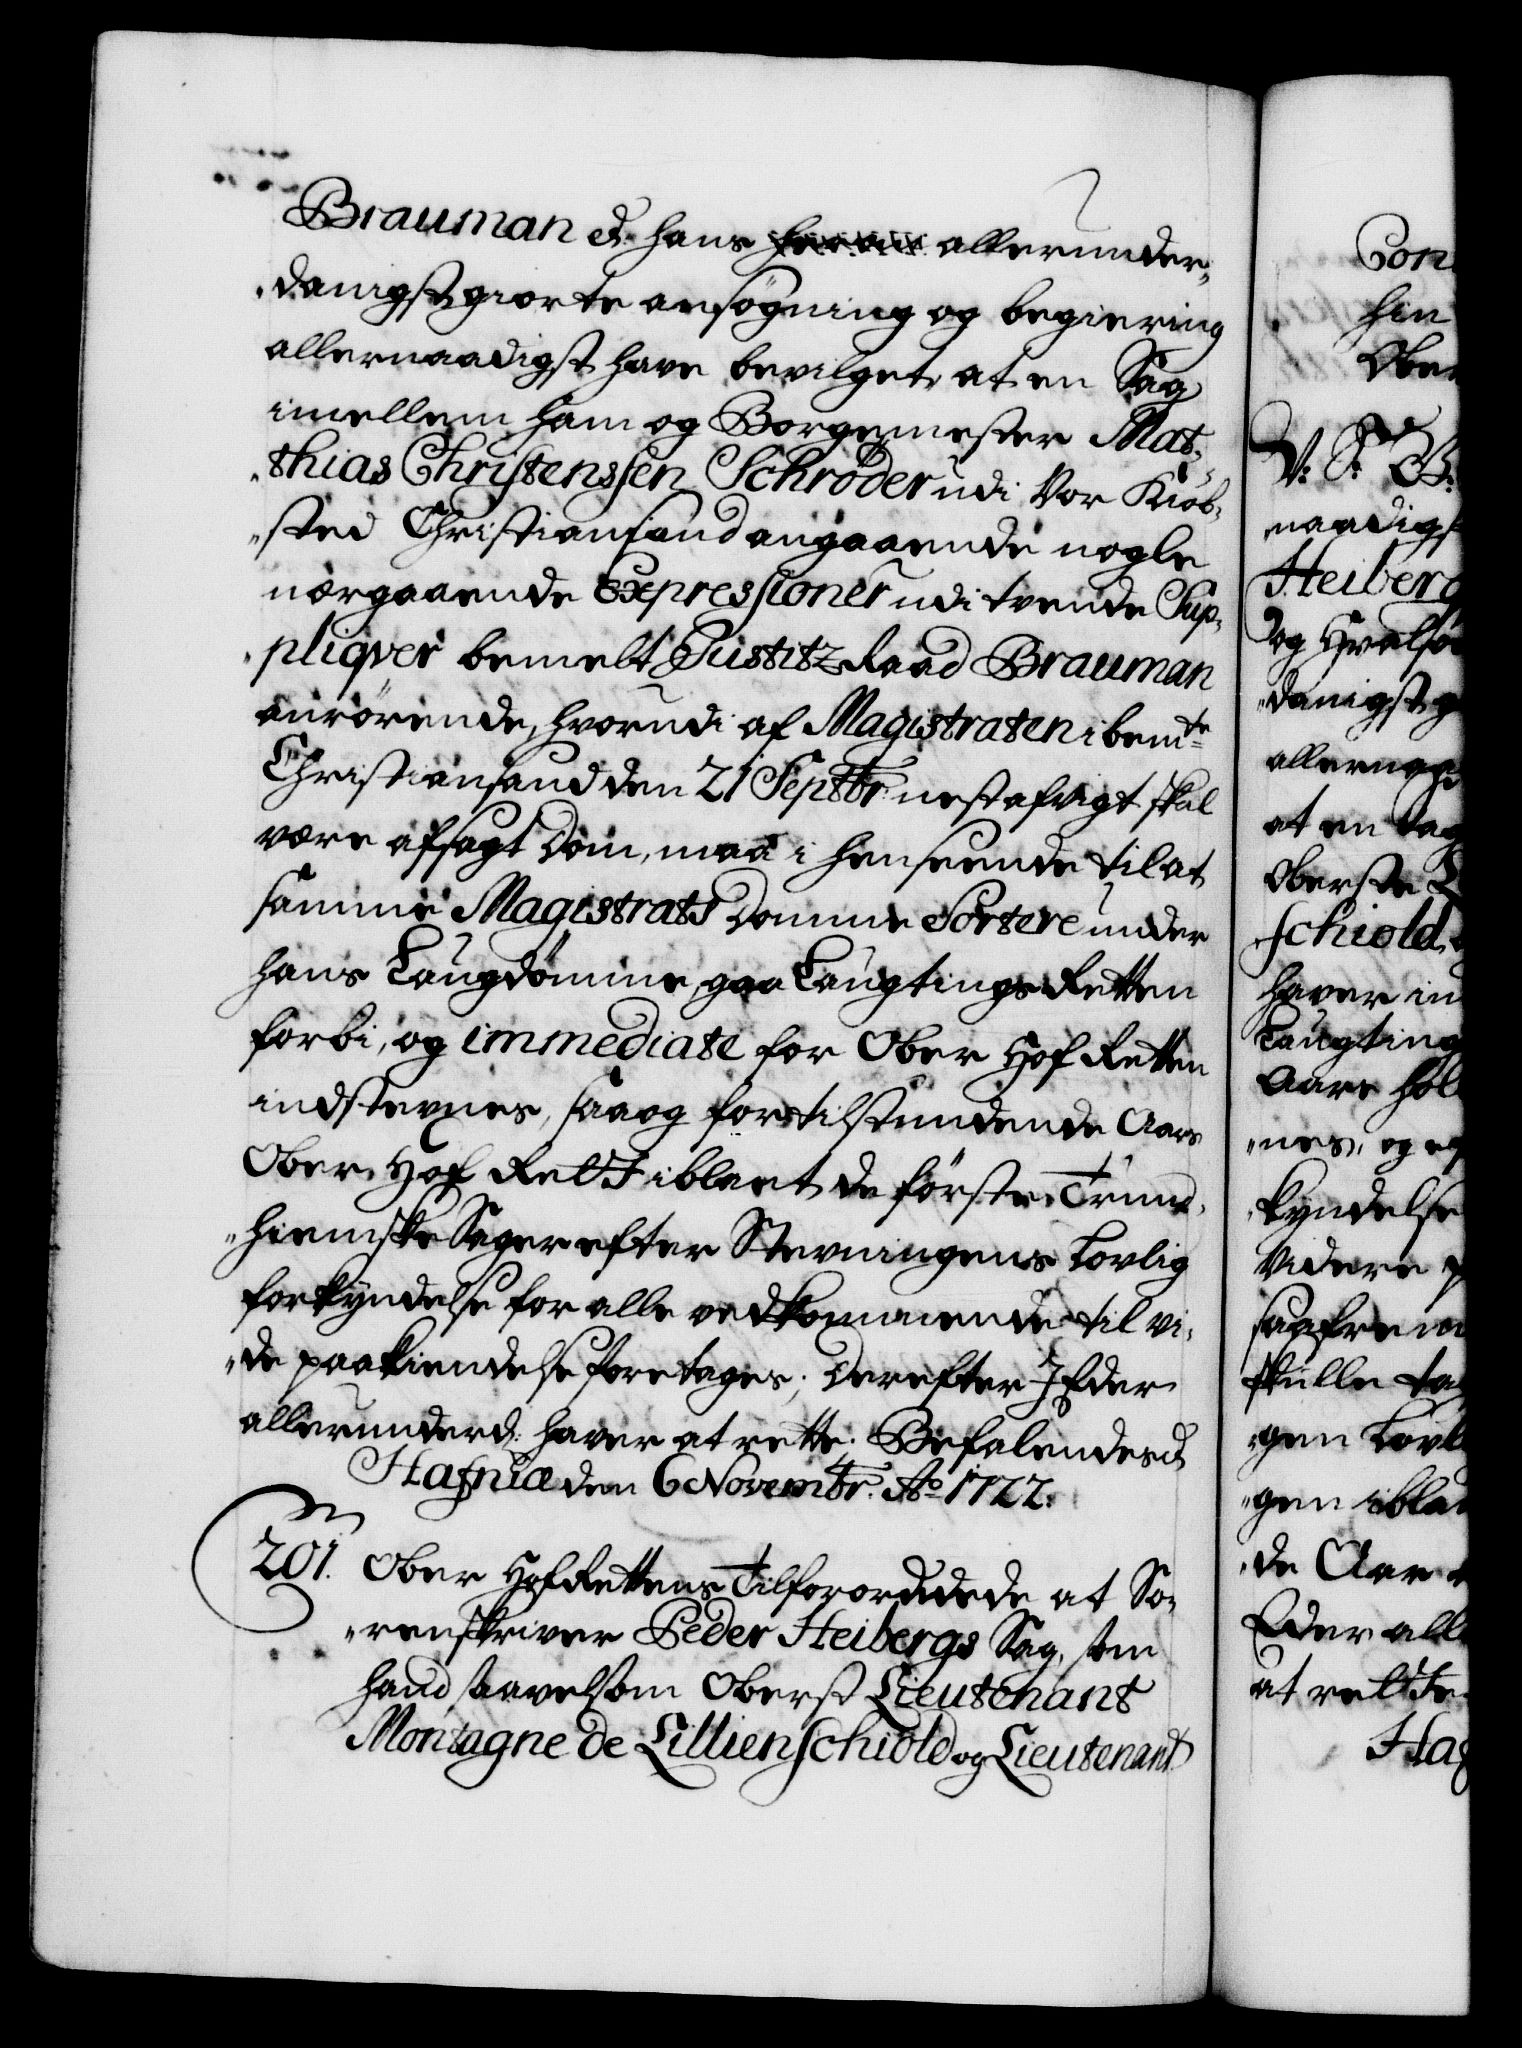 Brauman etc. hans allerunder-
danigst giorte ansögning og begiering
allernaadigst have bevilget, at en Sag
imellem ham og Borgemester Mat-
thias Christenssen Schrøder udi Vor Kiøb-
sted Christiansand angaaende nogle
nærgaaende Expressioner udi tvende Sup-
pliqver bemelt Justitz Raad Brauman
anrörende, hvorudi af Magistraten i bemte
Christiansand den 21 Septbr. nestafvigt skal
være afsagt Dom, maa i henseende til at
samme Magistrats Domme Sortere under
hans Laugdømme, gaa Laugtings Retten
forbi, og immediate for Ober Hof Retten
indstevnes, saa og for tilstundende Aars
Ober Hof Rett iblant de förste Trund-
hiemske Sager efter Stevningens Lovlig
forkyndelse for alle vedkommende til vi-
de paakiendelse foretages; Derefter I Eder
allerunderd. haver at rette. Befalendes etc.
Hafniæ den 6 Novembr. Ao 1722.
201. Ober Hof Rettens Tilforordnede at So-
renskriver Peder Heibergs Sag, som
hand saavelsom Oberst Lieutenant
Montagne de Lillienschiold og Lieutenant
Con
hin
Ober
V. S. G.
naadigst
Heiberg
og Hvalsö
danigst g
allernaad
at en Sag
Oberste L
schiold,
haver in
Laugting
Aars hol
nes, og ef
kyndelse
Videre p
saafrem
skulle ta
gen Lovl
gen iblan
de Aar
Eder all
at rette.
Haf